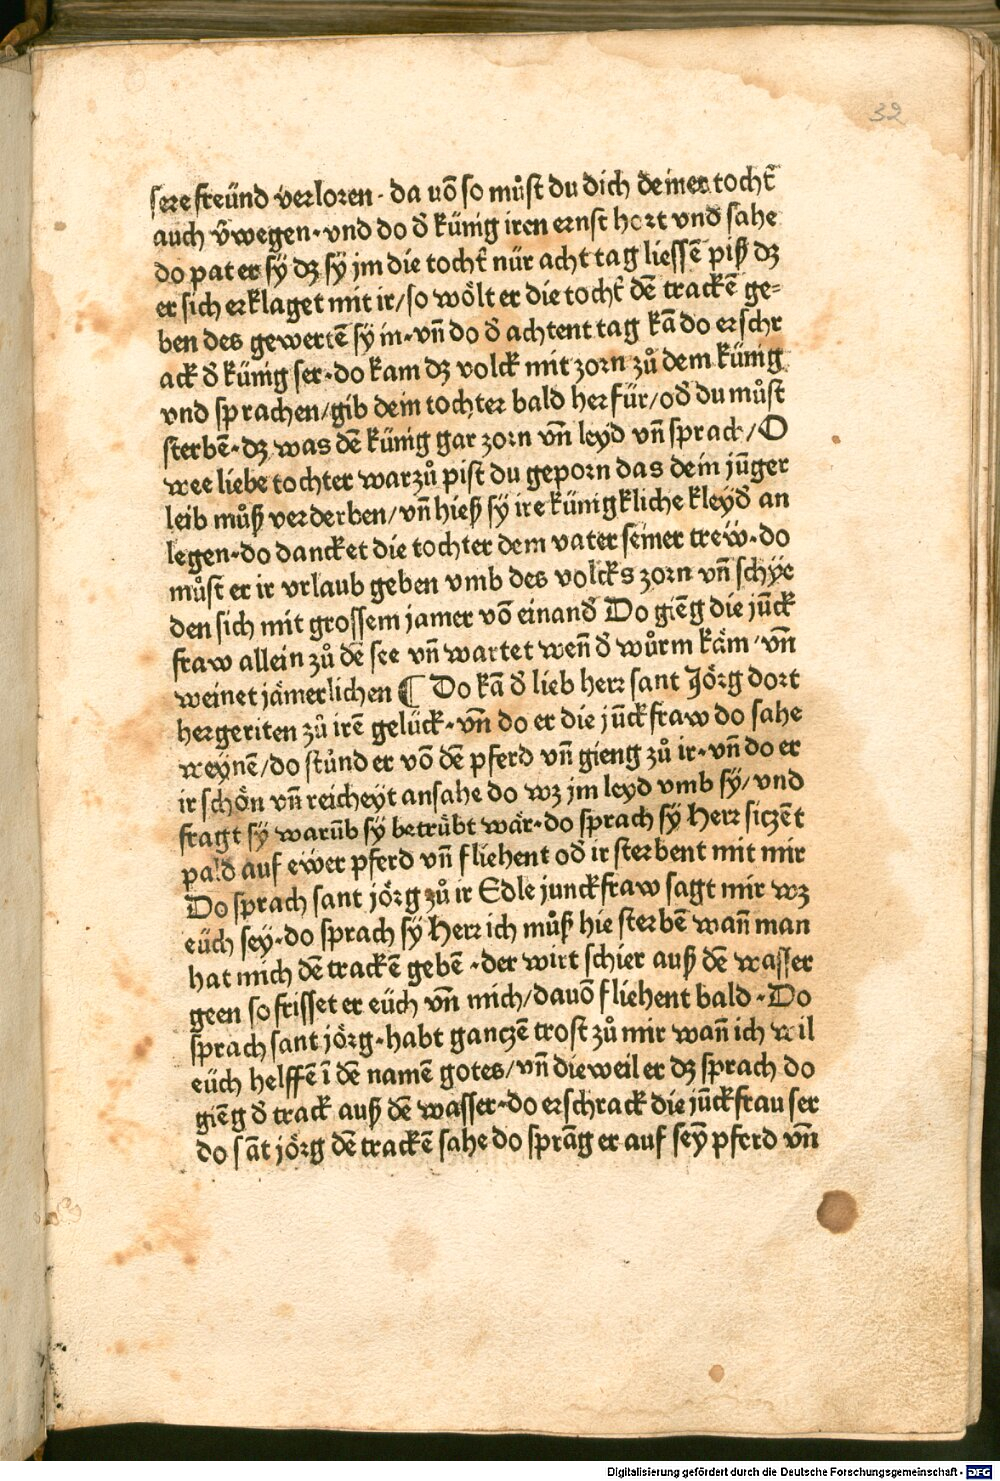 32
sere freünd verloren · da uō so můst du dich deiner tocht̄
auch v̄wegen · vnd do d̄ künig iren ernst hort vnd sahe
do pat er sÿ dʒ sÿ jm die tocht̄ nür acht tag liessē piß dʒ
er sich erklaget mit ir/so wölt er die tocht̄ dē trackē ge=
ben des gewertē sÿ in · vn̄ do d̄ achtent tag kā do erschr
ack d̄ künig ser · do kam dʒ volck mit zorn zů dem künig
vnd sprachen/gib dein tochter bald her für/od̄ du můst
sterbē · dʒ was dē künig gar zorn vn̄ leyd vn̄ sprach/O
wee liebe tochter warzů pist du geporn das dein jūger
leib můß verderben/vn̄ hieß sÿ ire künigkliche kleyd̄ an
legen · do dancket die tochter dem vater seiner trew̎ · do
můst er ir vrlaub geben vmb des volcks zorn vn̄ schÿe
den sich mit grossem jamer vō einand̄ Do giēg die jūck
fraw allein zů dē see vn̄ wartet wen̄ d̄ wůrm käm · vn̄
weinet jämerlichen ¶ Do kā d̄ lieb herr sant Jörg dort
her geriten zů irē gelück · vn̄ do er die jūckfraw do sahe
weynē/do stůnd er vō dē pferd vn̄ gieng zů ir · vn̄ do er
ir schön vn̄ reicheyt ansahe do wʒ jm leyd vmb sÿ/vnd
fragt sÿ warūb sÿ betrübt wär · do sprach sÿ Herr siczēt
pald auf ew̎er pferd vn̄ fliehent od̄ ir sterbent mit mir
Do sprach sant jörg zů ir Edle junckfraw sagt mir wʒ
eüch sey · do sprach sÿ Herr ich můß hie sterbē wan̄ man
hat mich dē trackē gebē · der wirt schier auß dē wasser
geen so frisset er eüch vn̄ mich/dauō fliehent bald · Do
sprach sant jörg · habt ganczē trost zů mir wan̄ ich wil
eüch helffē ī dē namē gotes/vn̄ dieweil er dʒ sprach do
giēg d̄ track auß dē wasser · do erschrack die jūckfrau ser
do sāt jörg dē trackē sahe do sprāg er auf seȳ pferd vn̄
Digitalisierung gefördert durch die Deutsche Forschungsgemeinschaft - DFG